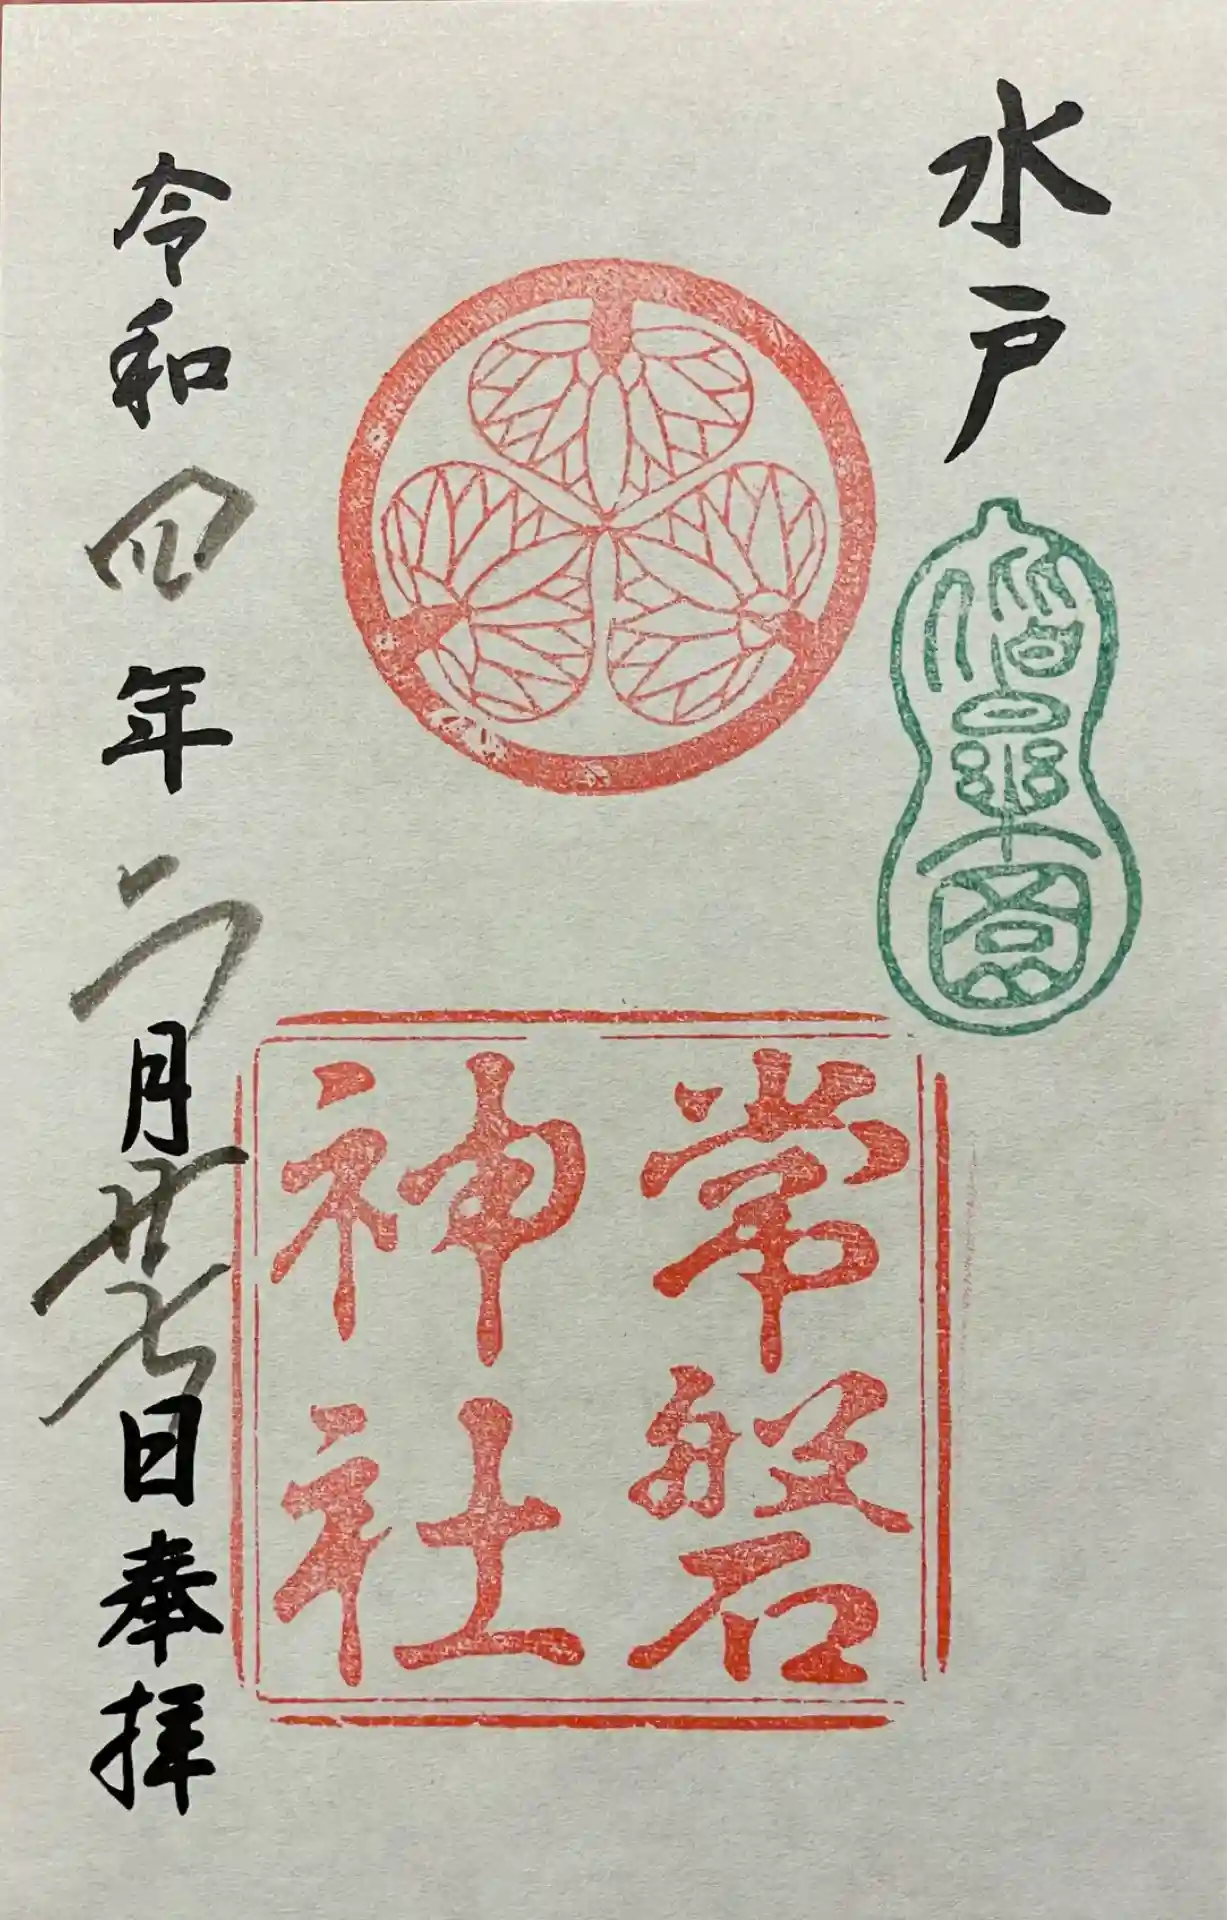 水戸
偕樂園
常磐
神社
令和四年六月廿七日奉拝